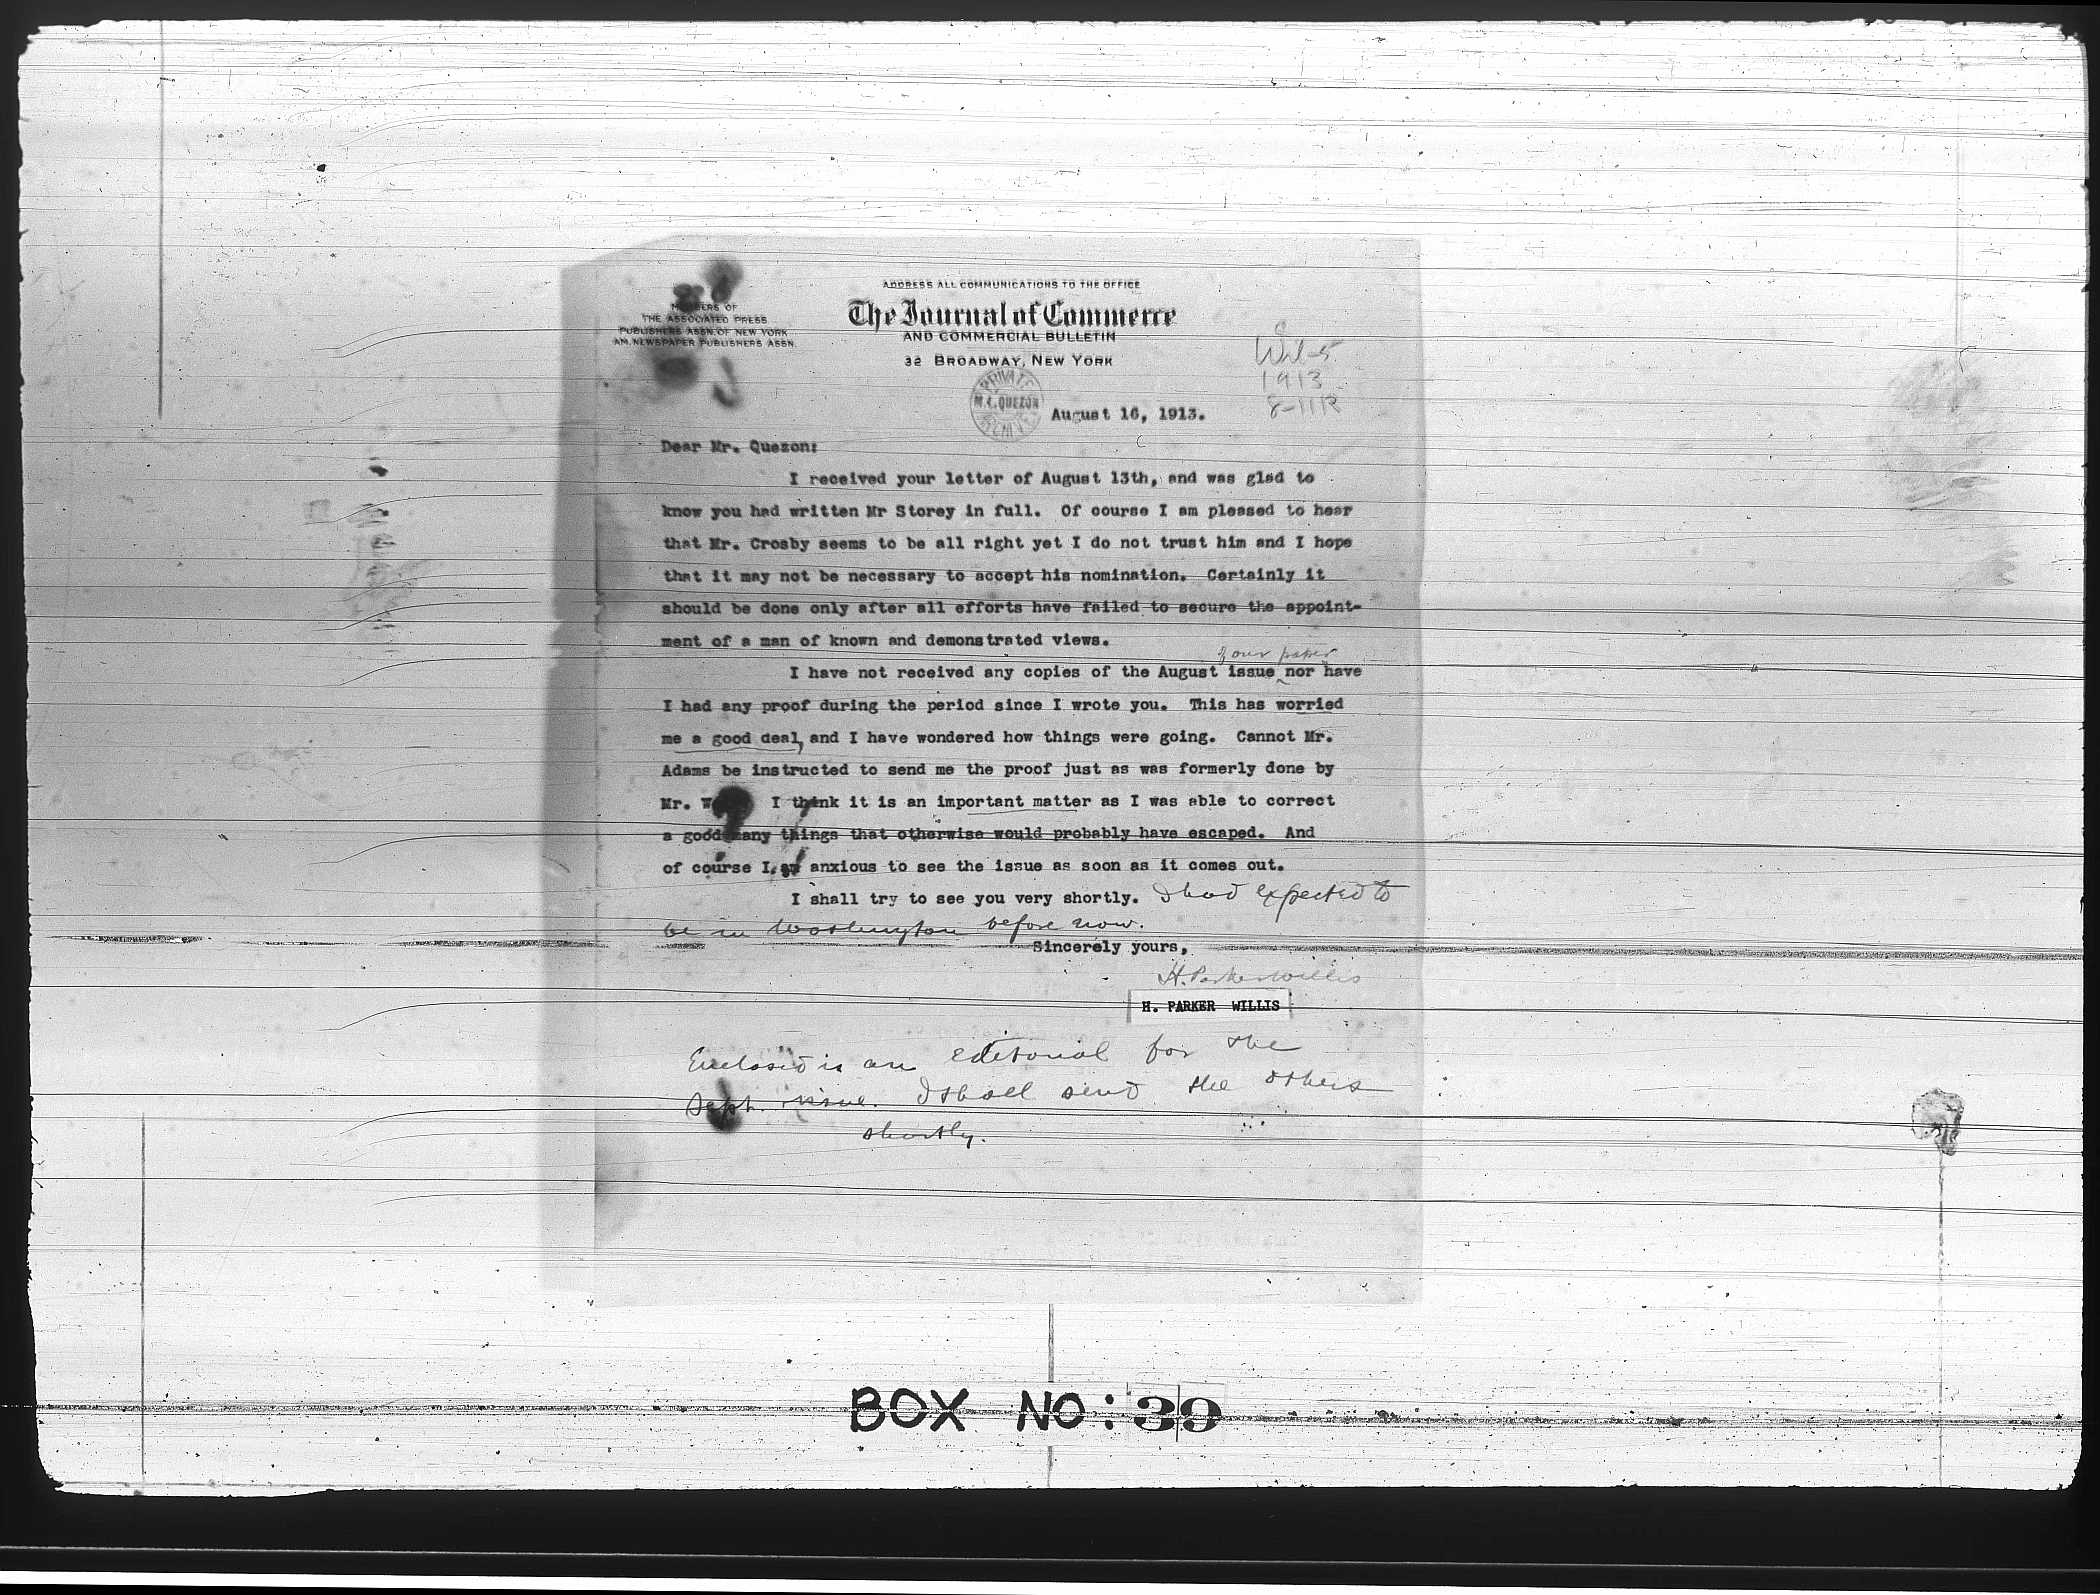 ADDRESS ALL COMMUNICATIONS TO THE OFFICE
MEMBERS OF
THE ASSOCIATED PRESS
PUBLISHERS ASSN. OF NEW YORK
AM. NEWSPAPER PUBLISHERS ASSN.
The Journal of Commerce
AND COMMERCIAL BULLETIN
32 BROADWAY, NEW YORK
1913
PRIVATE
M. L. QUEZON
August 16, 1913.
Dear Mr. Quezon:
I received your letter of August 13th, and was glad to
know you had written Mr Storey in full. Of course I am pleased to hear
that Mr. Crosby seems to be all right yet I do not trust him and I hope
that it may not be necessary to accept his nomination. Certainly it
should be done only after all efforts have failed to secure the appoint-
ment of a man of known and demonstrated views.
of our paper
I have not received any copies of the August issue nor have
I had any proof during the period since I wrote you. This has worried
me a good deal, and I have wondered how things were going. Cannot Mr.
Adams be instructed to send me the proof just as was formerly done by
Mr. I think it is an important matter as I was able to correct
a good many things that otherwise would probably have escaped. And
of course I am anxious to see the issue as soon as it comes out.
I shall try to see you very shortly. I had expected to
be in Washington before now.
Sincerely yours,
H. Parker Willis
H. PARKER WILLIS
Enclosed is an editorial for the
Sept. issue. I shall send the others
shortly.
BOX NO: 39